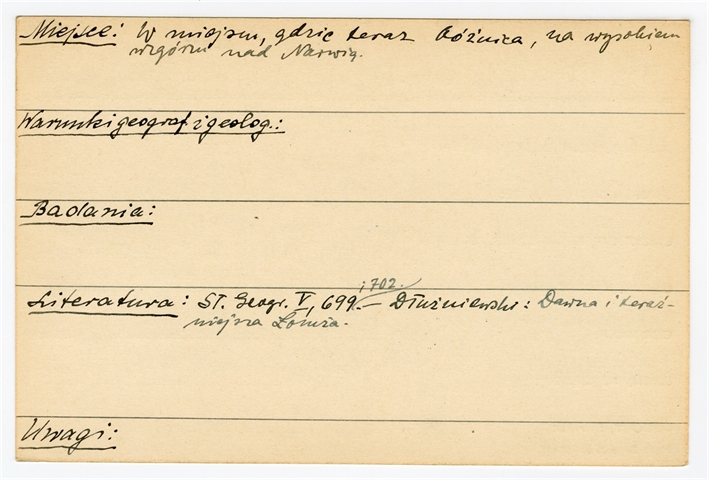 Miejsce: W miejscu, gdzie teraz bóżnica, na wysokiem
wzgórzu nad Narwią.
Warunki geograf. i geolog.:
Badania:
i 702.
Literatura: Sł. Geogr. V, 699. — Dłużniewski: Dawna i teraź-
niejsza Łomża.
Uwagi: